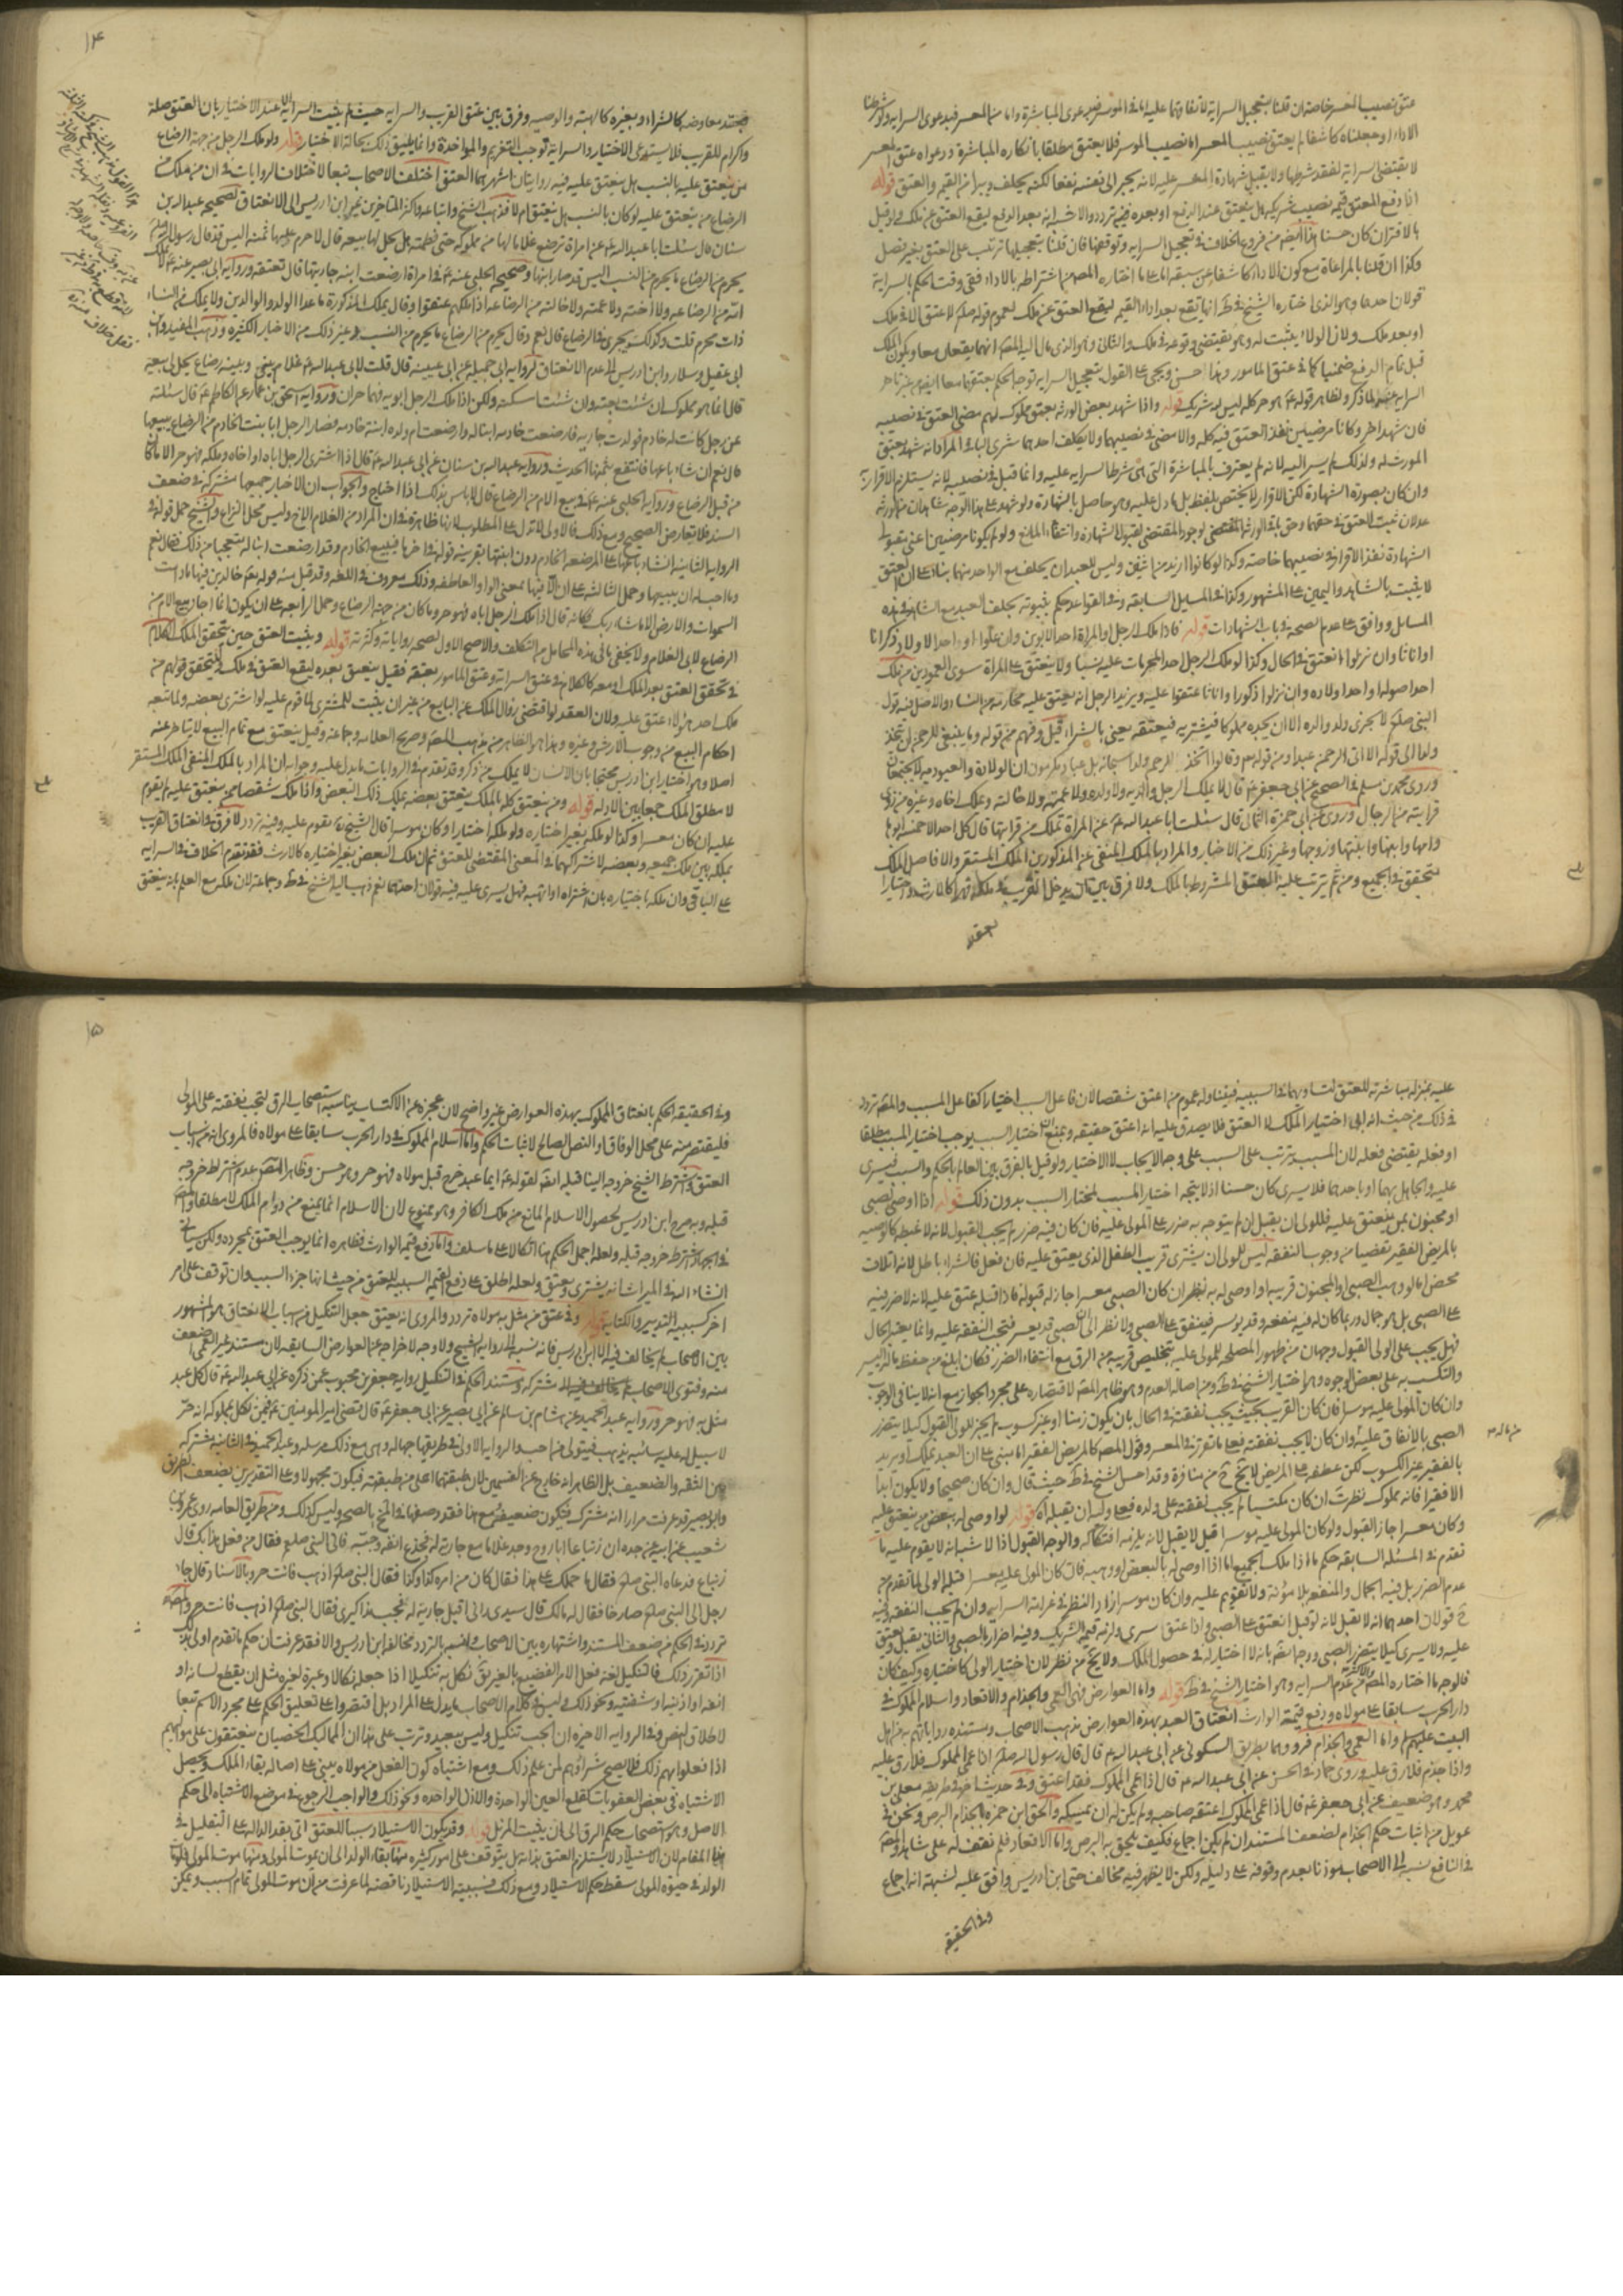 عتق نصيب المعسر خاصة ان قلنا بتعجيل السراية لانتفائها عليه اما في الموسر فبدعوى المباشرة واما من المعسر فبدعوى السراية ولو شرطنا
الاداء او جعلناه كاشفا لم يعتق نصيب المعسر اما نصيب الموسر فلا يعتق مطلقا بانكاره المباشرة ودعواه عتق المعسر
لا يقتضي سراية لفقد شرطها ولا يقبل شهادة المعسر عليه لانه يجر الى نفسه نفعا لكنه يحلف ويبرأ من القيمة والعتق قوله
اذا دفع المعتق قيمة نصيب شريكه هل ينعتق عند الدفع او بعده فيه تردد والاشبه انه بعد الدفع ليقع العتق عن ملك ولو قيل
بالاقتران كان حسنا هذا ايضا من فروع الخلاف في تعجيل السراية وتوقفها فان قلنا بتعجيلها ترتب على العتق بغير فصل
وكذا ان قلنا بالمراعاة مع كون الاداء كاشفا عن سبقه اما على ما اختاره المصنف من اشتراطه بالاداء ففي وقت الحكم بالسراية
قولان احدهما وهو الذي اختاره الشيخ في ط انها تقع بعد اداء القيمة ليقع العتق عن ملك لعموم قوله صلم لا عتق الا في ملك
او بعد ملك ولان الولاء يثبت له وهو يقتضي وقوعه في ملك والثاني وهو الذي مال اليه المصنف انهما يقعان معا ويكون الملك
قبل تمام الدفع ضمنيا كما في عتق المامور وهذا حسن ويجئ على القول بتعجيل السراية توجه الحكم بعتقهما معا ايضا من غير تاخر
السراية عنه لما ذكر ولظاهر قوله ع هو حر كله ليس لله شريك قوله واذا شهد بعض الورثة بعتق مملوك لهم مضى العتق في نصيبه
فان شهد اخر وكانا مرضيين نفذ العتق فيه كله والا مضى في نصيبهما ولا يكلف احدهما شرى الباقي المراد انه شهد بعتق
المورث له ولذلك لم يسر اليه لانه لم يعترف بالمباشرة التي هي شرط السراية عليه وانما قبل في نصيبه لانه يستلزم الاقرار به
وان كان بصورة الشهادة لكن الاقرار لا يختص بلفظ بل ما دل عليه وهو حاصل بالشهادة ولو شهد على هذا الوجه شاهدان من الورثة
عدلان ثبت العتق في حقهما وحق باقي الورثة لوجود المقتضي لقبول الشهادة وانتفاء المانع ولو لم يكونا مرضيين اعني مقبولي
الشهادة نفذ الاقرار في نصيبهما خاصة وكذا لو كانوا ازيد من اثنين وليس للعبد ان يحلف مع الواحد منهما بناء على ان العتق
لا يثبت بالشاهد واليمين على المشهور وكذا في المسايل السابقة وفي القواعد حكم بثبوته بحلف العبد مع الشاهد في هذه
المسايل ووافق على عدم الصحة في باب الشهادات قوله فاذا ملك الرجل او المراة احد الابوين وان علوا او احد الاولاد ذكرانا
او اناثا وان نزلوا انعتق في الحال وكذا لو ملك الرجل احد المحرمات عليه نسبا ولا ينعتق على المراة سوى العمودين من ملك
احد اصوله او احد اولاده وان نزلوا ذكورا واناثا عتقوا عليه ويزيد الرجل انه يعتق عليه محارمه من النساء والاصل فيه قول
النبي صلم لا يجزي ولد والده الا ان يجده مملوكا فيشتريه فيعتقه يعني بالشراء قيل وفهم من قوله وما ينبغي للرحمن ان يتخذ
ولدا الى قوله الا اتى الرحمن عبدا ومن قوله تع وقالوا اتخذ الرحمن ولدا سبحانه بل عباد مكرمون ان الولادة والعبودية لا يجتمعان
وروى محمد بن مسلم في الصحيح عن ابي جعفر ع قال لا يملك الرجل والديه ولا ولده ولا عمته ولا خالته ويملك اخاه وغيره من ذوي
قرابته من الرجال وروى عن ابي حمزة الثمالي قال سئلت ابا عبد الله ع عن المراة تملك من قرابتها قال كل احد الا خمسة ابوها
وامها وابنها وابنتها وزوجها وغير ذلك من الاخبار والمراد بالملك المنفي عن المذكورين الملك المستقر والا فاصل الملك
متحقق في الجميع ومن ثم ترتب عليه العتق المشروط بالملك ولا فرق بين ان يدخل القريب في ملكه قهرا كالارث واختيارا
بعقد
١٤
بعقد معاوضة كالشراء وبغيره كالهبة والوصية وفرق بين عتق القريب والسراية حيث لم يثبت السراية الا عند الاختيار بان العتق صلة
واكرام للقريب فلا يستدعي الاختيار والسراية توجب التغريم والمؤاخذة وانما يليق ذلك بحالة الاختيار قوله ولو ملك الرجل من جهة الرضاع
من ينعتق عليه بالنسب هل ينعتق عليه فيه روايتان اشهرهما العتق اختلف الاصحاب تبعا لاختلاف الروايات في ان من ملك من
الرضاع من ينعتق عليه لو كان بالنسب هل ينعتق ام لا فذهب الشيخ واتباعه واكثر المتاخرين غير ابن ادريس الى الانعتاق لصحيحة عبد الله بن
سنان قال سئلت ابا عبد الله ع عن امراة ترضع غلاما لها من مملوكة حتى تفطمه هل يحل لها بيعه قال لا حرم عليها ثمنه اليس قد قال رسول الله صلم
يحرم من الرضاع ما يحرم من النسب اليس قد صار ابنها وصحيحة الحلبي عنه ع في امراة ارضعت ابن جاريتها قال تعتقه ورواية ابي بصير عنه ع لا يملك
امه من الرضاعة ولا اخته ولا عمته ولا خالته من الرضاعة اذا ملكهم عتقوا وقال يملك الذكور ما عدا الولد والوالدين ولا يملك من النساء
ذات محرم قلت وكذلك يجري في الرضاع قال نعم وقال يحرم من الرضاع ما يحرم من النسب وغير ذلك من الاخبار الكثيرة وذهب المفيد وابن
ابي عقيل وسلار وابن ادريس الى عدم الانعتاق لرواية ابي جميلة عن ابي عيينه قال قلت لابي عبد الله ع غلام بيني وبينه رضاع يحل لي بيعه
قال انما هو مملوك ان شئت بعته وان شئت امسكته ولكن اذا ملك الرجل ابويه فهما حران ورواية اسحق بن عمار عن الكاظم ع قال سئلته
عن رجل كانت له خادم فولدت جارية فارضعت خادمه ابنا له وارضعت ام ولده ابنة خادمه فصار الرجل ابا بنت الخادم من الرضاع يبيعها
قال نعم ان شاء باعها فانتفع بثمنها الحديث ورواية عبد الله بن سنان عن ابي عبد الله ع قال اذا اشترى الرجل اباه او اخاه وملكه فهو حر الا ما كان
من قبل الرضاع ورواية الحلبي عنه ع في بيع الام من الرضاع قال لا باس بذلك اذا احتاج والجواب ان الاخبار جميعها مشتركة في ضعف
السند فلا يعارض الصحيح ومع ذلك فالاولى لا تدل على المطلوب لانها ظاهرة في ان المراد من الغلام الاخ وليس محل النزاع والشيخ حمل قوله في
الرواية الثانية ان شاء باعها على المرضعة الخادم دون ابنتها بقرينة قوله في اخرها فيبيع الخادم وقد ارضعت ابنا له تعجبا من ذلك فقال نعم
وما احب له ان يبيعها وحمل الثالثة على ان الا فيها بمعنى الواو العاطفة وذلك معروف في اللغة وقد قيل منه قوله تع خالدين فيها ما دامت
السموات والارض الا ما شاء ربك فكانه قال اذا ملك الرجل اباه فهو حر وما كان من جهة الرضاع وحمل الرابعة على ان يكون انما اجاز بيع الام من
الرضاع لابي الغلام ولا يخفى ما في هذه المحامل من التكلف والاصح الاول لصحة رواياته وكثرته قوله ويثبت العتق حين تحقق الملك الكلام
في تحقق العتق بعد الملك او معه كالكلام في عتق السراية وعتق المامور بعتقه فقيل ينعتق بعده ليقع العتق في ملك
ملك احد هؤلاء عتق عليه ولان العقد لو اقتضى زوال الملك عن البايع من غير ان يثبت للمشتري لما قوم عليه لو اشترى بعضه ولما تبعه
احكام البيع من وجوب الارش وغيره وهذا هو الظاهر من مذهب المصنف وصريح العلامة وجماعة وقيل ينعتق مع تمام البيع لا يتاخر عنه
اصلا وهو اختيار ابن ادريس محتجا بان الانسان لا يملك من ذكر وقد تقدم في الروايات ما يدل عليه وجوابه ان المراد بالملك المنفي الملك المستقر
لا مطلق الملك جمعا بين الادلة قوله ومن ينعتق كله بالملك ينعتق بعضه بملك ذلك البعض واذا ملك شقصا ممن ينعتق عليه لم يقوم
عليه ان كان معسرا وكذا لو ملكه بغير اختياره ولو ملكه اختيارا وكان موسرا قال الشيخ يقوم عليه وفيه تردد لا فرق في انعتاق القريب
بملكه بين ملك جميعه وبعضه لاشتراكهما في المعنى المقتضي للعتق ثم ان ملك البعض بغير اختياره كالارث فقد تقدم الخلاف في السراية
على الباقي وان ملكه باختياره بان اشتراه او اتهبه فهل يسري عليه فيه قولان احدهما نعم ذهب اليه الشيخ في ط وجماعة لان ملكه مع العلم بانه ينعتق
عليه بمنزلة مباشرته للعتق لتساويهما في السببية فيتناوله عموم من اعتق شقصا لان فاعل السبب اختيارا كفاعل المسبب والمصنف تردد
في ذلك من حيث انه انما اختيار الملك لا العتق فلا يصدق عليه انه اعتق حقيقة ويمنع ان اختيار السبب يوجب اختيار المسبب مطلقا
او فعله يقتضي فعله لان المسبب يترتب على السبب على وجه الايجاب لا الاختيار ولو قيل بالفرق بين العالم بالحكم والسبب فيسري
عليه والجاهل بهما او باحدهما فلا يسري كان حسنا اذ لا يتجه اختيار المسبب لمختار السبب بدون ذلك قوله اذا اوصي لصبي
او مجنون بمن ينعتق عليه فللولي ان يقبل ان لم يتوجه به ضرر على المولى عليه فان كان فيه ضرر لم يجب القبول لانه لا غبطة كالوصية
بالمريض الفقير تفصيا من وجوب النفقة ليس للولي ان يشتري قريب الطفل الذي يعتق عليه فان فعل فالشراء باطل لانه اتلاف
محض اما لو وهب الصبي او المجنون قريبه او اوصي له به نظر ان كان الصبي معسرا جاز له قبوله فاذا قبله عتق عليه لانه لا ضرر فيه
على الصبي بل هو جمال وربما كان له فيه منفعة وقد يوسر فينفق على الصبي ولا نظر الى ان الصبي قد يوسر فتجب النفقة عليه وانما يعتبر الحال
فهل يجب على الولي القبول وجهان من ظهور المصلحة للمولى عليه بتخليص قريبه من الرق مع انتفاء الضرر فكان ابلغ من حفظ ماله اليسير
والتكسب به على بعض الوجوه وهو اختيار الشيخ في ط ومن اصالة العدم وهو ظاهر المصنف لاقتصاره على مجرد الجواز مع انه لا ينافي الوجوب
وان كان المولى عليه موسرا فان كان القريب بحيث يجب نفقته في الحال بان يكون زمنا او غير كسوب لم يجز للولي القبول كيلا يتضرر
الصبي بالانفاق عليه وان كان لا يجب نفقته فعلى ما تقرر في المعسر وقول المصنف كالمريض الفقير اما مبني على ان العبد يملك او يريد
بالفقير غير الكسوب لكن عطفه على المريض لا يخ من منافرة وقد احسن الشيخ في ط حيث قال وان كان صحيحا ولا يكون ابدا
الا فقيرا فانه مملوك نظرت ان كان مكتسبا لم يجب نفقته على ولده فعلى وليه ان يقبله اه قوله لو اوصي له ببعض من ينعتق عليه
وكان معسرا جاز القبول ولو كان المولى عليه موسرا قيل لا يقبل لانه يلزمه افتكاكه والوجه القبول اذ الاشبه انه لا يقوم عليه ما
تقدم في المسئلة السابقة حكم ما اذا ملك الجميع اما اذا اوصي له بالبعض او وهبه فان كان المولى عليه معسرا قبله الولي لما تقدم من
عدم الضرر بل فيه الجمال والمنفعة بلا مؤنة ولا تقويم عليه وان كان موسرا زاد النظر في غرامة السراية وان لم يجب النفقة وفيه
ح قولان احدهما انه لا يقبل لانه لو قبل انعتق على الصبي واذا عتق سرى ولزمه قيمة الشريك وفيه اضرار بالصبي والثاني يقبل ويعتق
عليه ولا يسري كيلا يتضرر الصبي ووجها بانه لا اختيار له في حصول الملك ولا يخ من نظر لان اختيار الولي كاختياره وكيف كان
فالوجه ما اختاره المصنف والاكثر من عدم السراية وهو اختيار الشيخ في ط قوله واما العوارض فهي العمى والجذام والاقعاد واسلام المملوك في
دار الحرب سابقا على مولاه ودفع قيمة الوارث انعتاق العبد بهذه العوارض مذهب الاصحاب ومستنده رواياتهم عن اهل
البيت عليهم السلام واما العمى والجذام فرووهما بطريق السكوني عن ابي عبد الله ع قال قال رسول الله صلم اذا عمي المملوك فلا رق عليه
واذا جذم فلا رق عليه وروى حماد في الحسن عن ابي عبد الله ع قال اذا عمي المملوك فقد اعتق وفي حديث اخر في طريقه معلى بن
محمد وهو ضعيف عن ابي جعفر ع قال اذا عمي المملوك اعتقه صاحبه ولم يكن له ان يمسكه والحق ابن حمزة بالجذام البرص ونحن في
عويل من اثبات حكم الجذام لضعف المستند ان لم يكن اجماع فكيف يلحق به البرص واما الاقعاد فلم نقف له على شاهد والمصنف
في النافع نسبه الى الاصحاب مؤذنا بعدم وقوفه على دليله ولكن لا يظهر فيه مخالف حتى ابن ادريس وافق عليه لشبهة انه اجماع
وفي الحقيقة
١٥
وفي الحقيقة الحكم بانعتاق المملوك بهذه العوارض غير واضح لان عجزه عن الاكتساب يناسبه استصحاب الرق لتجب نفقته على المولى
فليقتصر منه على محل الوفاق او النص الصالح لاثبات الحكم واما اسلام المملوك في دار الحرب سابقا على مولاه فالمروي انه من اسباب
العتق واشترط الشيخ خروجه الينا قبله ايضا لقوله ع ايما عبد خرج قبل مولاه فهو حر وهو حسن وظاهر المصنف عدم اشتراط خروجه
قبله وبه صرح ابن ادريس لحصول الاسلام المانع من ملك الكافر وهو ممنوع لان الاسلام انما يمنع من دوام الملك لا مطلقا والمصنف
في الجهاد اشترط خروجه قبله ولعله اجمل الحكم هنا اتكالا على ما سلف واما دفع قيمة الوارث فظاهره انما يوجب العتق بمجرده ولكن سياتي
انشاء الله في الميراث انه يشترى ويعتق ولعله اطلق على دفع القيمة السببية للعتق من حيث انها جزء السبب وان توقف على امر
اخر كسببية التدبير والكتابة قوله وفي عتق من مثل به مولاه تردد والمروي انه يعتق جعل التنكيل من اسباب الانعتاق هو المشهور
بين الاصحاب لم يخالف فيه الا ابن ادريس فانه نسبه الى رواية الشيخ ولا وجه لاخراجه عن العوارض السابقة لان مستند غير العمى اضعف
منه وفتوى الاصحاب مشتركة ومستند الحكم في التنكيل رواية جعفر بن محبوب عمن ذكره عن ابي عبد الله ع قال كل عبد
مثل به فهو حر ورواية عبد الحميد عن هشام بن سالم عن ابي بصير عن ابي جعفر ع قال قضى امير المؤمنين ع فيمن نكل بمملوكه انه حر
لا سبيل له عليه سائبة يذهب فيتولى من احب والرواية الاولى في طريقها جهالة وهي مع ذلك مرسلة وعبد الحميد في الثانية مشترك
بين الثقة والضعيف بل الظاهر انه خارج عن القسمين لان طبقتهما اعلى من طبقته فيكون مجهولا وعلى التقديرين يضعف الطريق
وابو بصير قد عرفت مرارا انه مشترك فتكون ضعيفة ومع هذا فقد وصفها في الشرح بالصحة وليس كذلك ومن طريق العامة روى عمرو بن
شعيب عن ابيه عن جده ان زنباعا ابا روح وجد غلاما مع جارية له فجدع انفه وجبه فاتى النبي صلم فقال من فعل هذا بك قال
زنباع فدعاه النبي صلم فقال ما حملك على هذا فقال كان من امره كذا وكذا فقال النبي صلم اذهب فانت حر وبالاسناد قال جاء
رجل الى النبي صلم صارخا فقال له مالك قال سيدي راني اقبل جارية له فجب مذاكيري فقال النبي صلم اذهب فانت حر والمصنف
تردد في الحكم من ضعف المستند واشتهاره بين الاصحاب ولم يصرح بالتردد مخالفا ابن ادريس والا فقد عرفت ان حكم ما تقدم اولى بذلك
اذا تقرر ذلك فالتنكيل لغة فعل الامر الفضيع بالغير يق نكل به تنكيلا اذا جعله نكالا وعبرة لغيره مثل ان يقطع لسانه او
انفه او اذنيه او شفتيه ونحو ذلك وليس في كلام الاصحاب ما يدل على المراد بل اقتصروا على تعليق الحكم على مجرد الاسم تبعا
لاطلاق النص وفي الرواية الاخيرة ان الجب تنكيل وليس ببعيد وترتب على هذا ان المماليك الخصيان ينعتقون على مواليهم
اذا فعلوا بهم ذلك فلا يصح شراؤهم لمن علم ذلك ومع اشتباه كون الفعل من مولاه يبنى على اصالة بقاء الملك ويحصل
الاشتباه في بعض العقوبات كقلع العين الواحدة والاذن الواحدة ونحو ذلك والواجب الرجوع في موضع الاشتباه الى حكم
الاصل وهو استصحاب حكم الرق الى ان يثبت المزيل قوله وقد يكون الاستيلاد سببا للعتق اتى بقد الدالة على التقليل في
هذا المقام لان الاستيلاد لا يستلزم العتق بذاته بل يتوقف على امور كثيرة منها بقاء الولد الى ان يموت المولى ومنها موت المولى فلو مات
الولد في حيوة المولى سقط حكم الاستيلاد ومع ذلك فسببية الاستيلاد ناقصة لما عرفت من ان موت المولى تمام السبب ويمكن